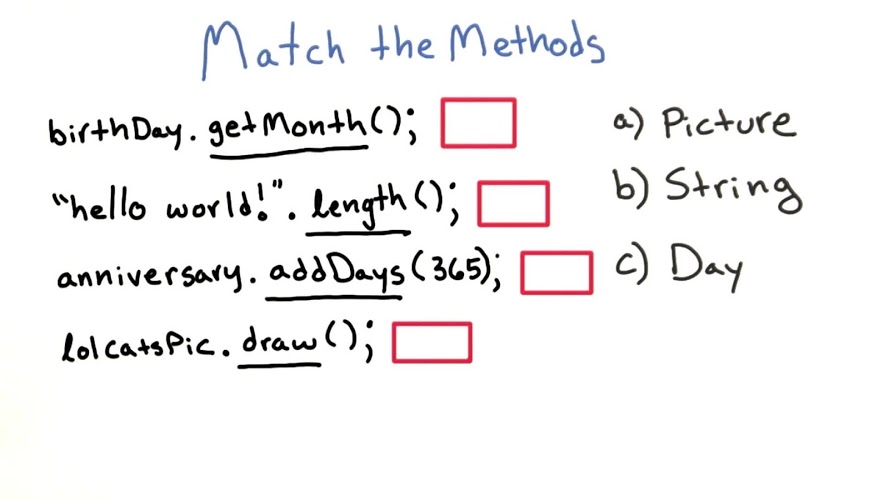 Match the Methods
birthDay.getMonth();
"hello world!".length();
anniversary.addDays(365);
lolcatsPic.draw();
a) Picture
b) String
c) Day